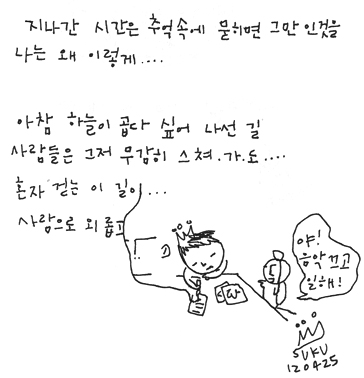 지나간 시간은 추억속에 묻히면 그만인것을
나는 왜 이렇게....
아참 하늘이 곱다 싶어 나선 길
사람들은 그저 무감히 스쳐.가.도....
혼자 걷는 이 길이...
사람으로 외롭고
야!
음악 끄고
일해!
SUKU
120425